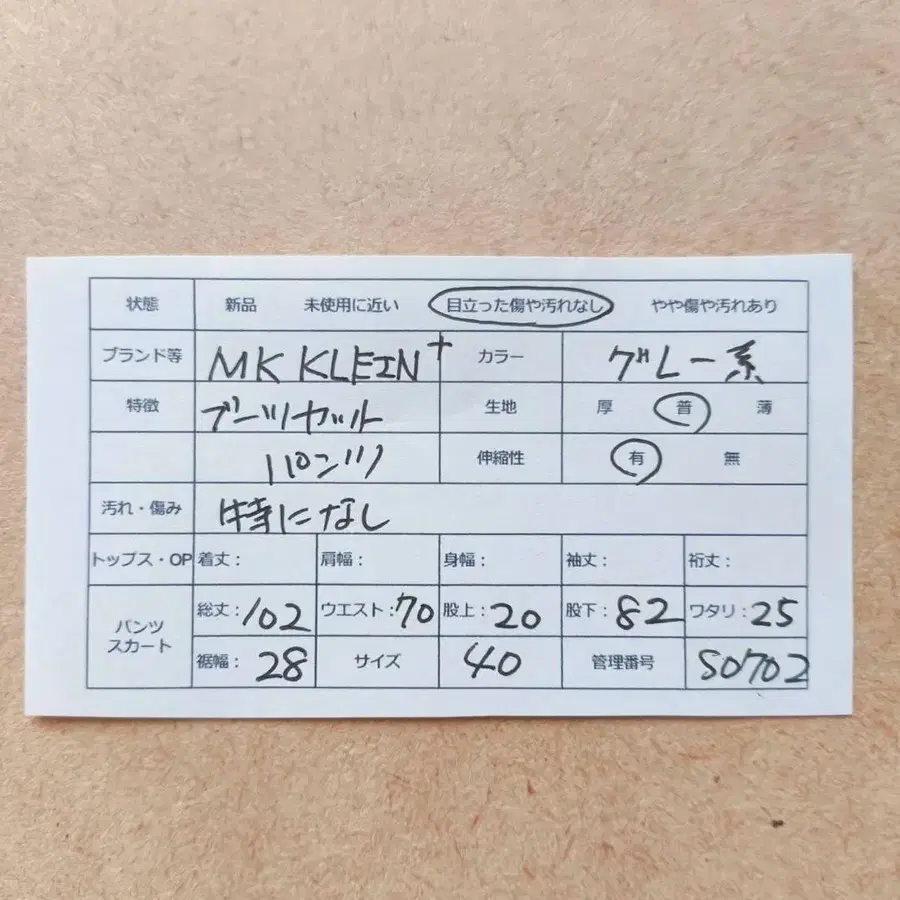 状態 新品 未使用に近い 目立った傷や汚れなし やや傷や汚れあり
ブランド等 MK KLEIN+ カラー グレー系
特徴 ブーツカット 生地 厚 普 薄
パンツ 伸縮性 有 無
汚れ・傷み 特になし
トップス・OP 着丈: 肩幅: 身幅: 袖丈: 裄丈:
パンツ 総丈:102 ウエスト:70 股上:20 股下:82 ワタリ:25
スカート 裾幅:28 サイズ 40 管理番号 S0702